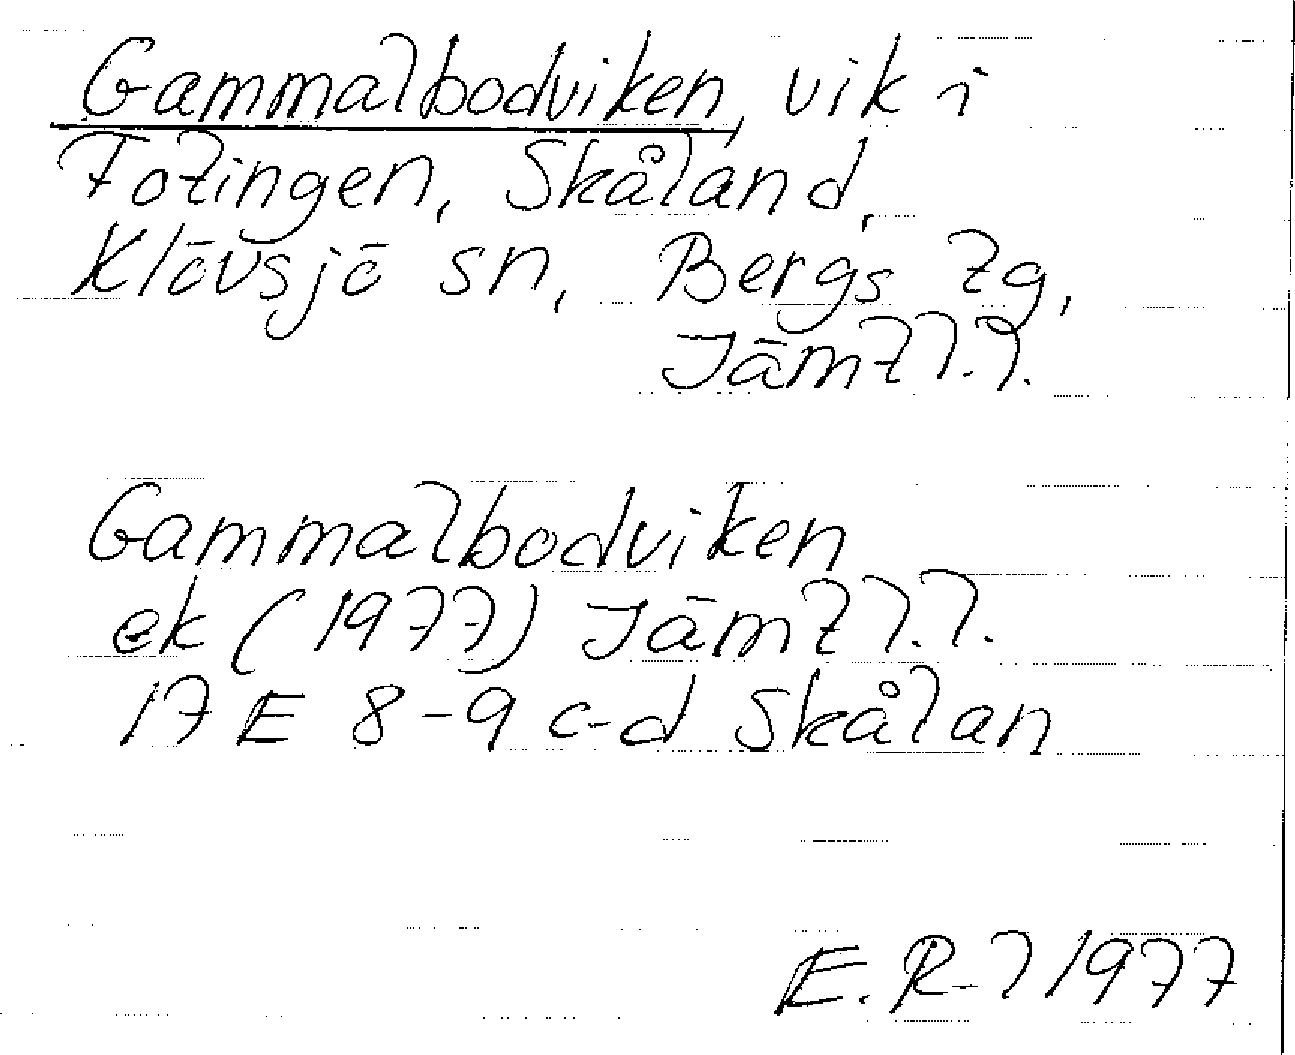 Gammalbodviken, vik i
Fotingen, Skåland,
Klövsjö sn, Bergs tg,
Jämtl.l.
Gammalbodviken
ek (1977) Jämtl.l.
17 E 8-9 c-d Skålan
E. R-l 1977